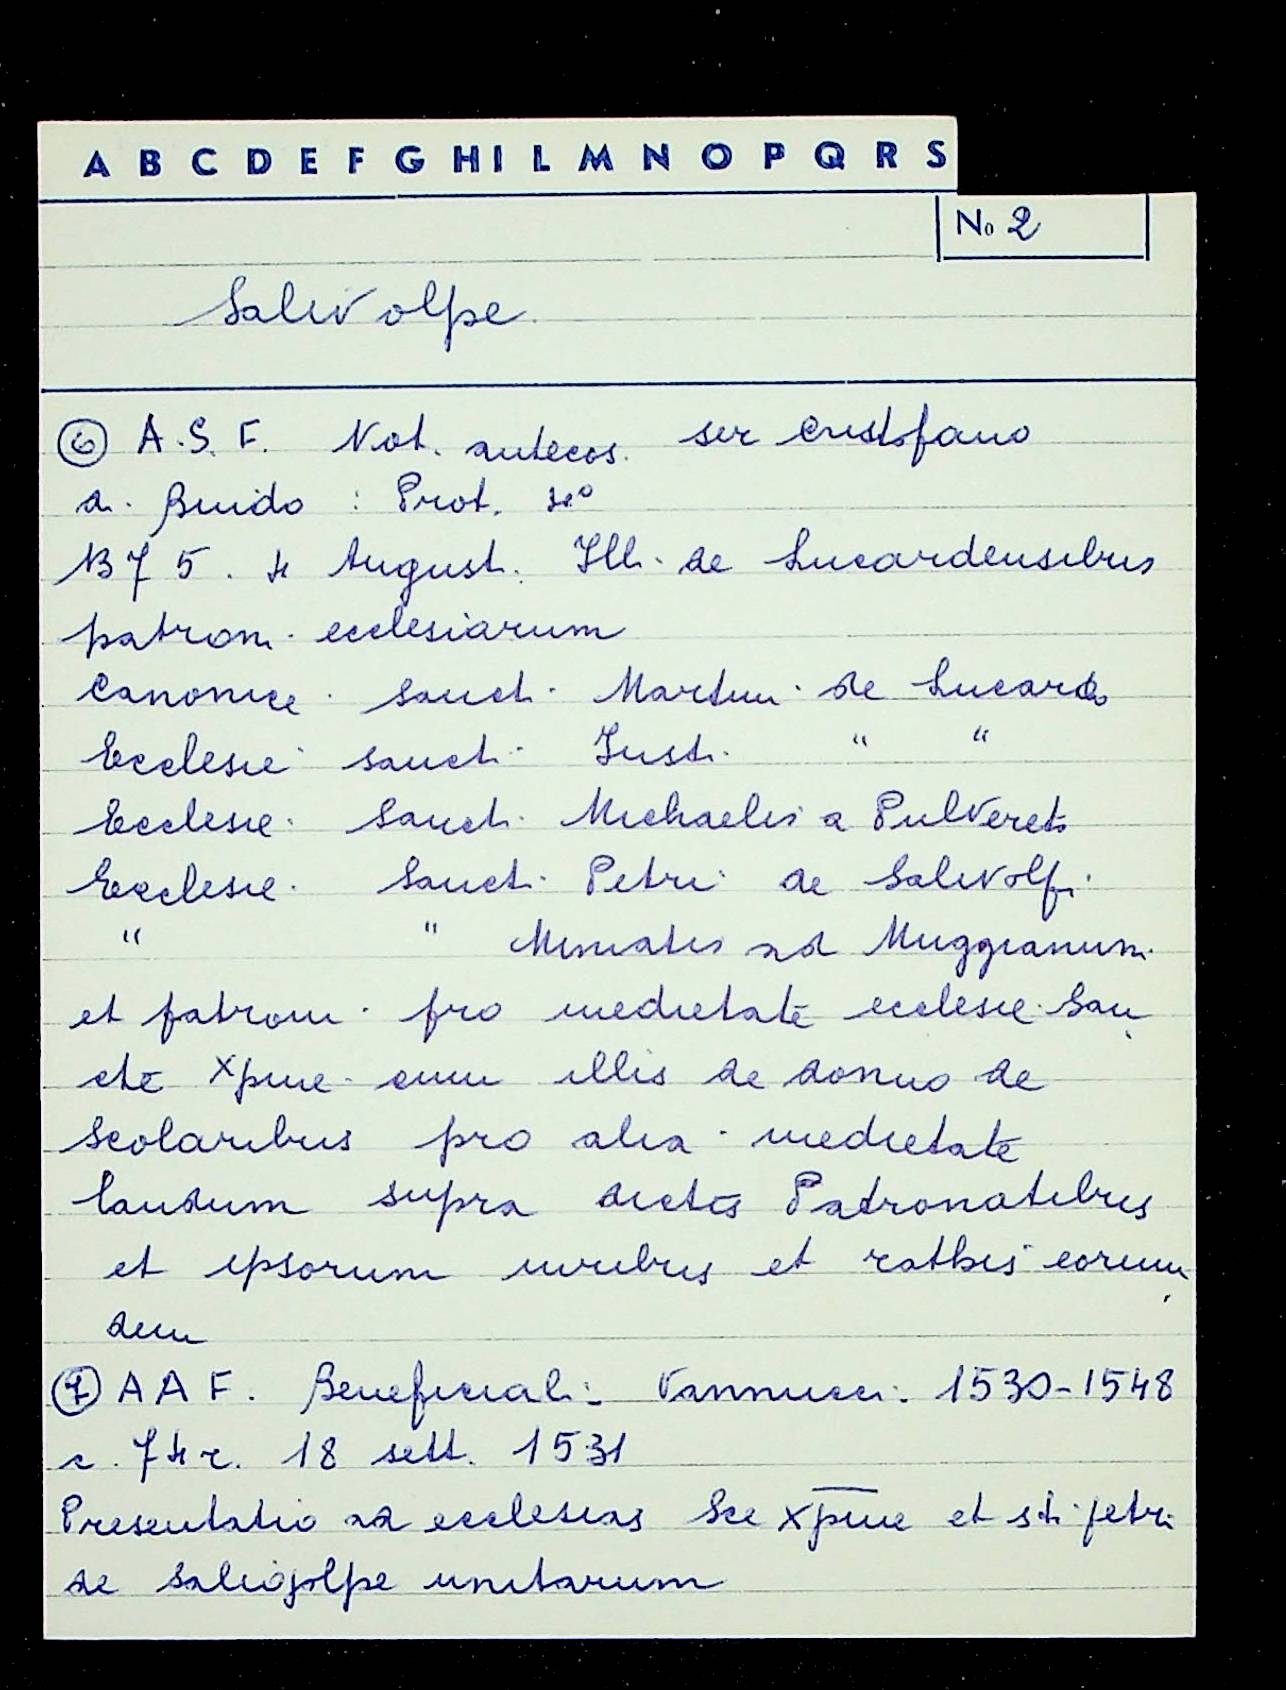 A B C D E F G H I L M N O P Q R S
No 2
Salivolpe
⑥ A.S.F. Not. antecos. ser Cristofano
di Guido : Prot. 4°
1375. 4 August. Illi de Lucardensibus
patroni ecclesiarum
Canonice sancti Martini de Lucardo
Ecclesie sancti Iusti " "
Ecclesie Sancti Michaelis a Pulvereto
Ecclesie Sancti Petri de Salivolpi
" " Miniatis ad Muggianum
et patroni pro medietatē ecclesie San
ctē Xpine cum illis de domno de
Scolaribus pro alia medietatē
laudum supra dictis Patronatibus
et ipsorum iuribus et eorum
dem
⑦ A A F. Beneficiali: Vannucci. 1530-1548
c. 74 r. 18 sett. 1531
Presentatio ad ecclesias Sce xpine et sti petri
de Saliogolpe unitarum